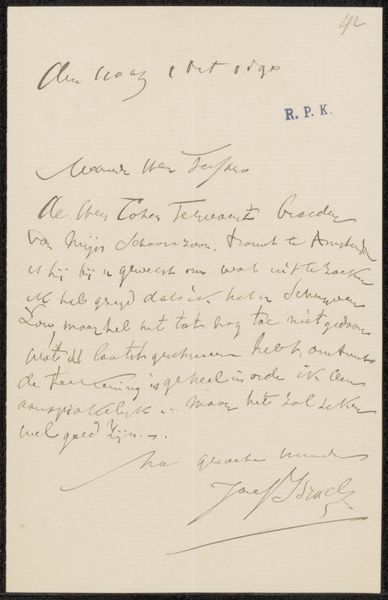 42
den Haag 1 Oct 1890
R. P. K.
Waarde Heer
De Heer Cohen Tervaert Broeder
van mijn Schoonzoon. woont te Amsterdam
is hij bij u geweest om wat uit te zoeken
ik heb gezegd dat ik het u Schrijven
Zou, maar heb het tot nog toe niet gedaan
wat U laatst geschreven hebt, omtrent
de teekening is geheel in orde ik ben
aansprakelijk ... maar het zal zeker
wel goed zijn.
na groete
Jozef Israels